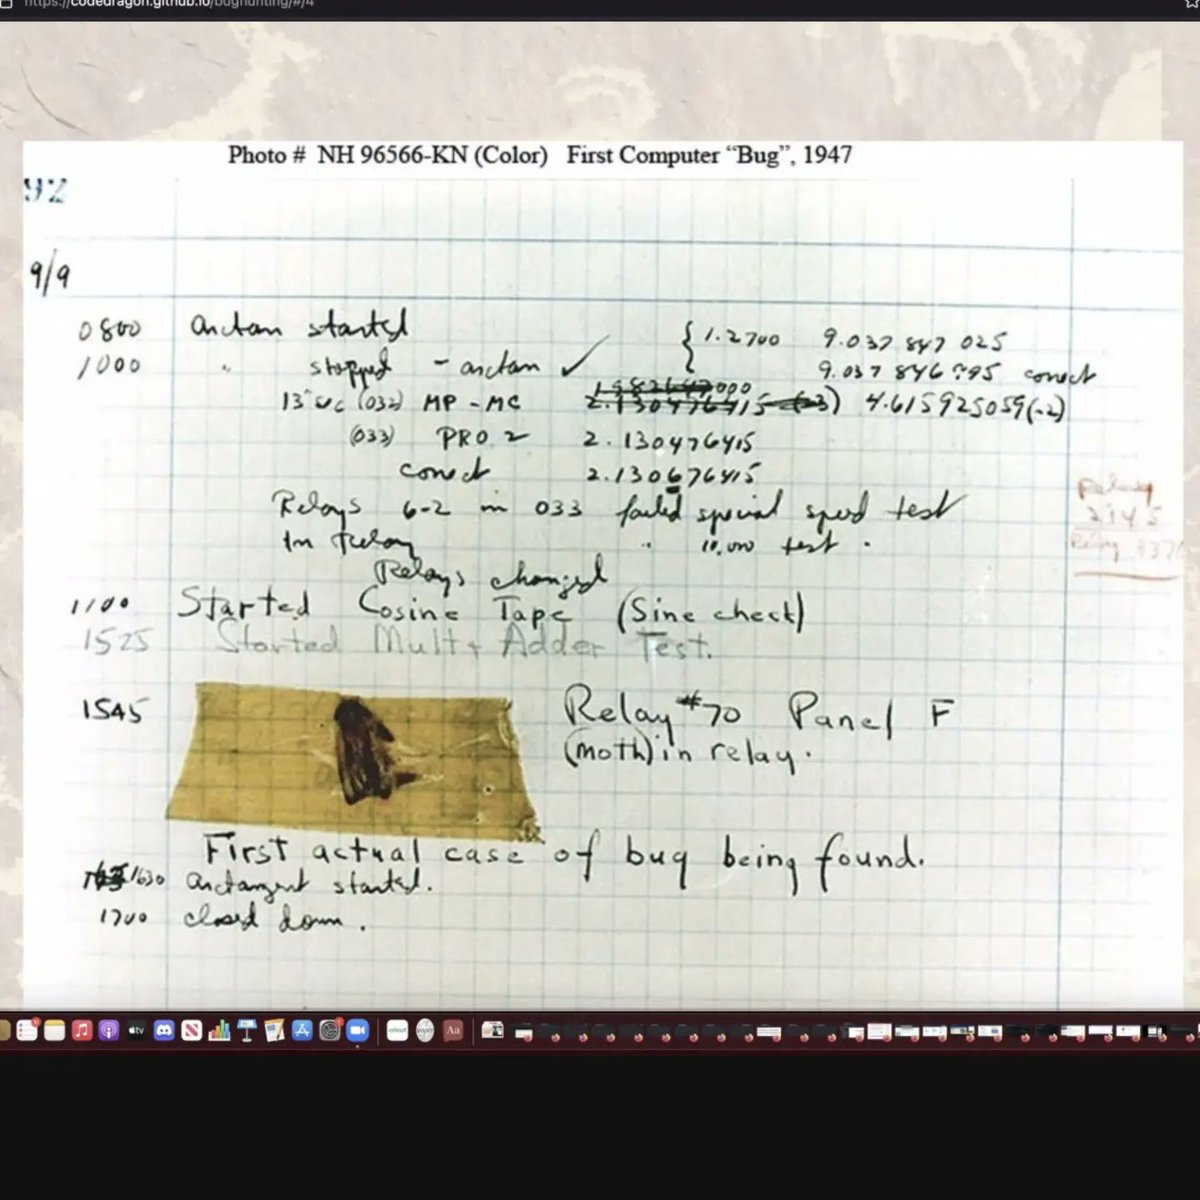 https://codedragon.github.io/bughunting/#/4
Photo # NH 96566-KN (Color) First Computer “Bug”, 1947
92
9/9
0800 arctan started { 1.2700 9.037 847 025
1000 " stopped - arctan ✓ 9.037 846 995 correct
000
13" (032) MP - MC 2.130476415 (-3) 4.615925059(-2)
(033) PRO 2 2.130476415
correct 2.130676415
Relays 6-2 in 033 failed special speed test
In Relay " 10,000 test .
Relays changed
Relay
2145
Relay 337
1100 Started Cosine Tape (Sine check)
1525 Started Mult + Adder Test.
1545 Relay #70 Panel F
(moth) in relay.
First actual case of bug being found.
1630 arctangent started.
1700 closed down .
tv
Aa